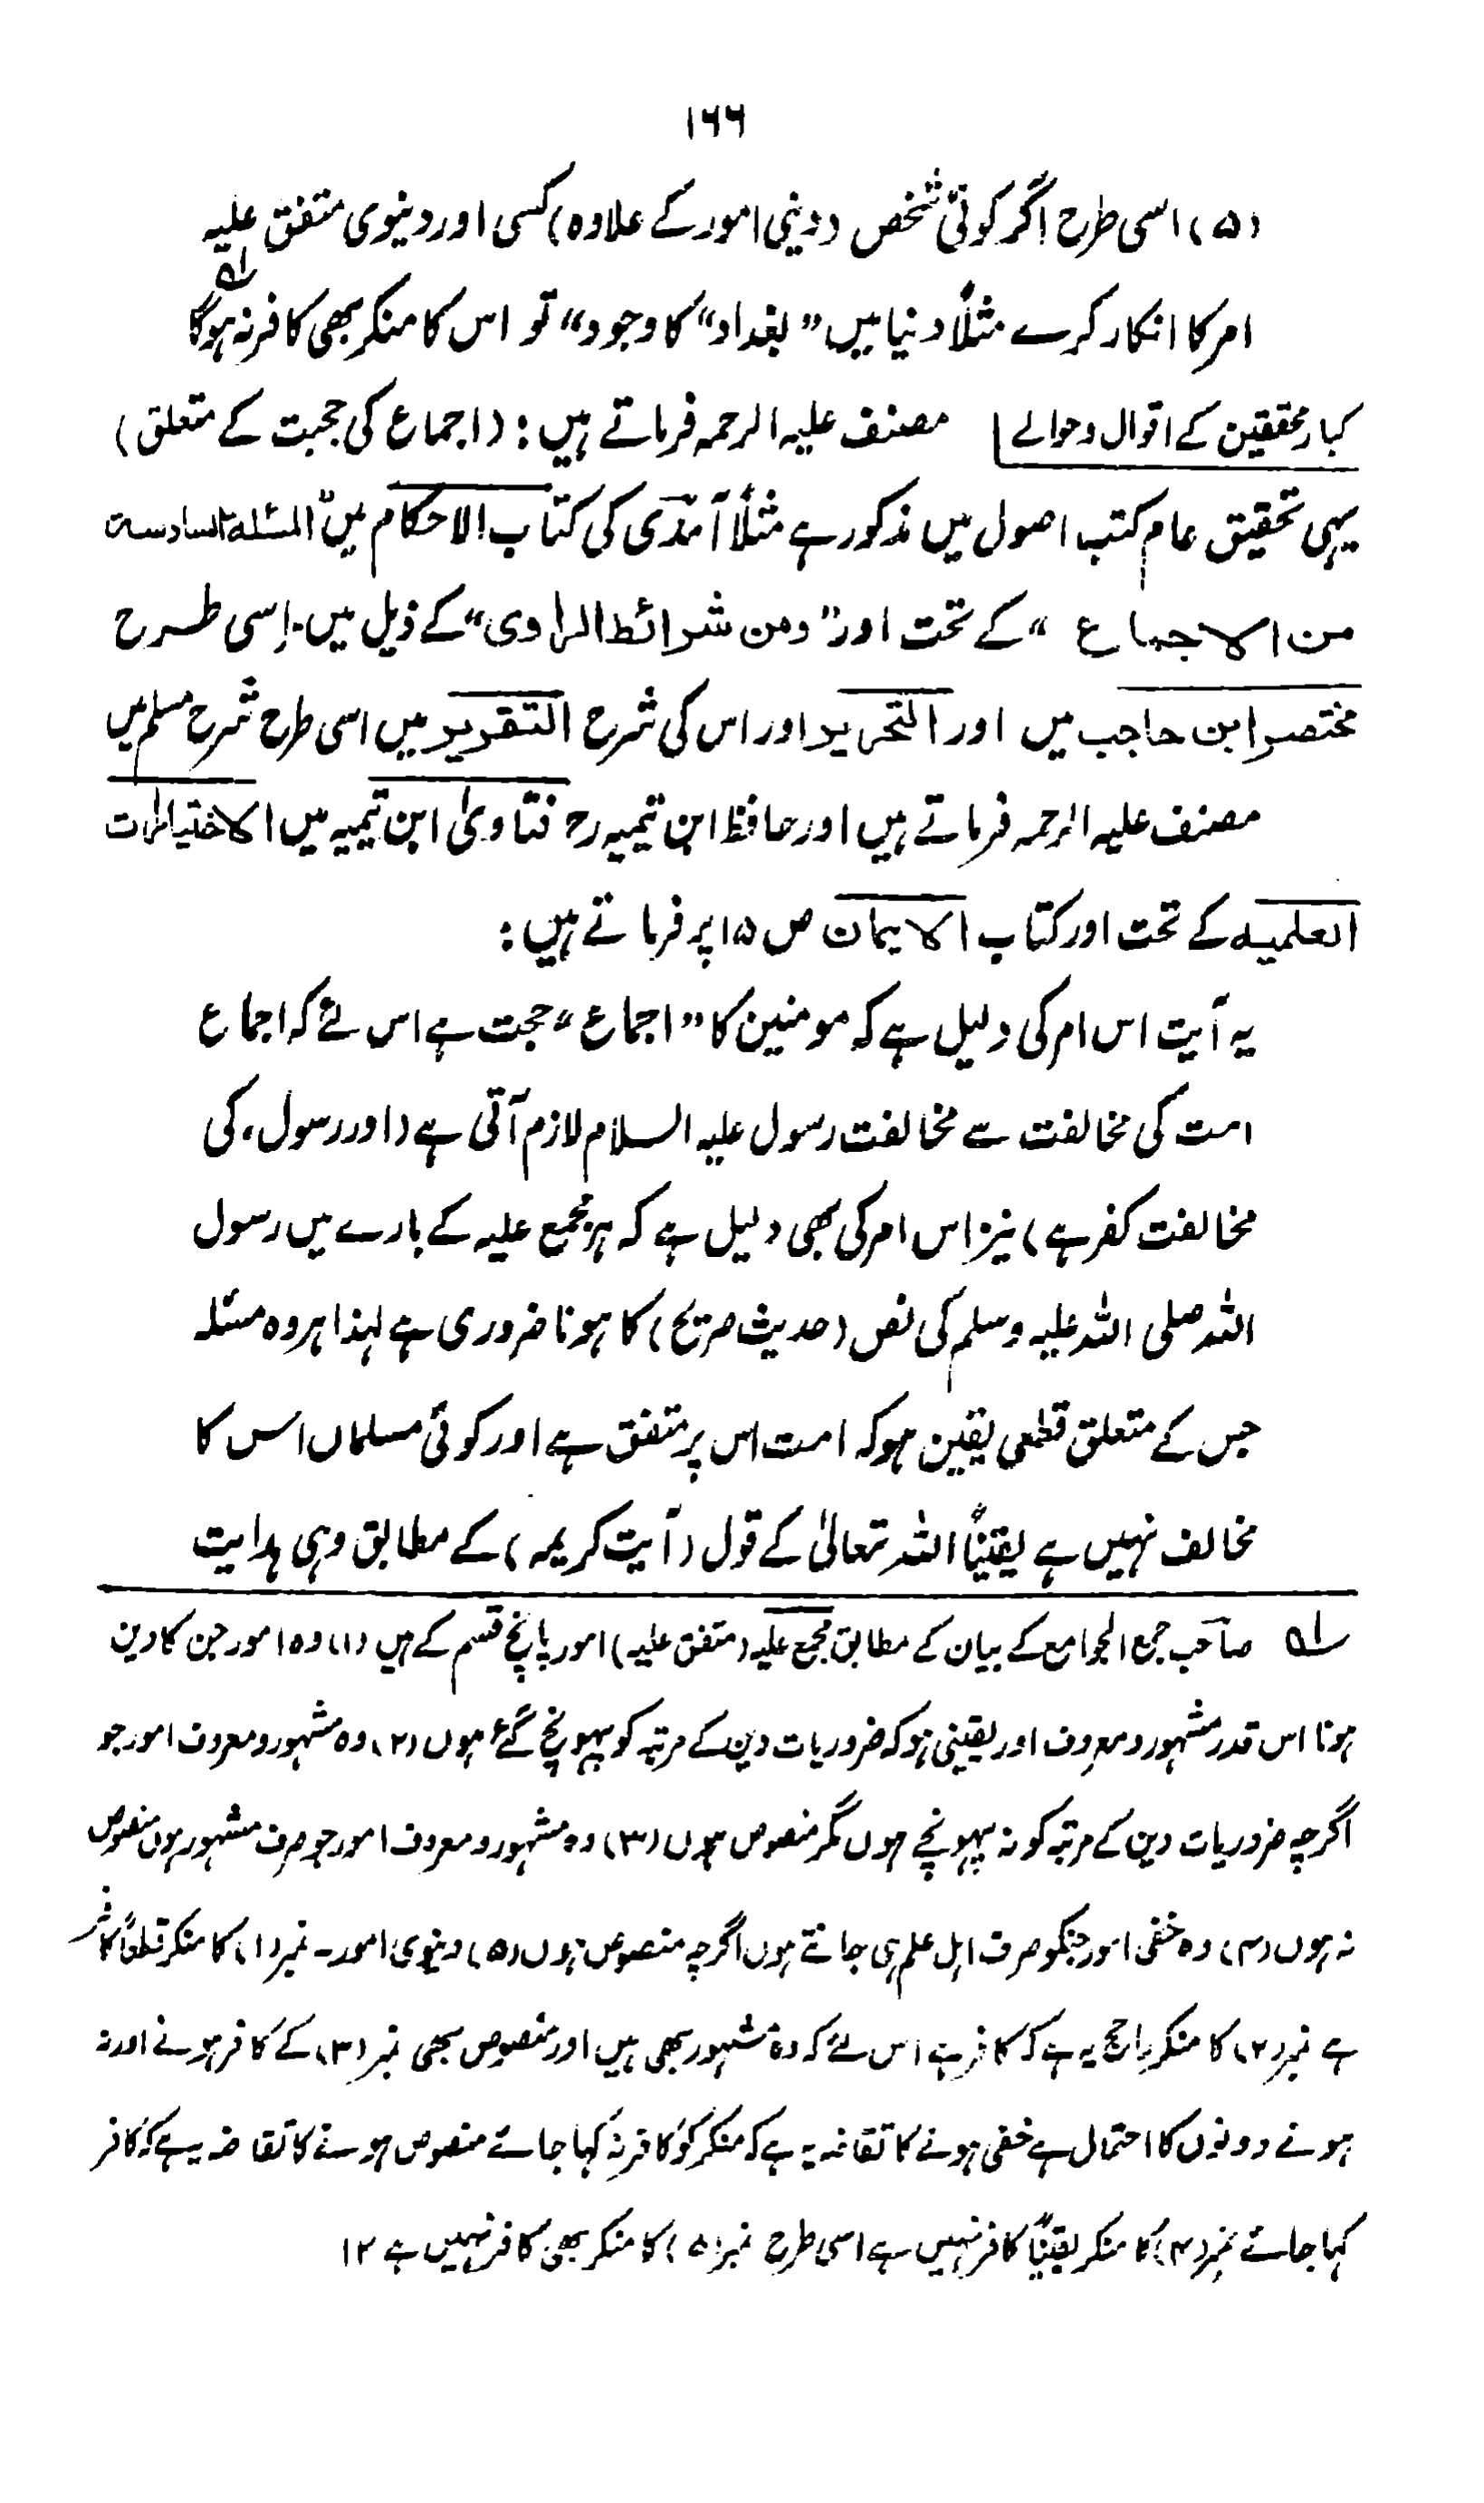 ۱۶۶
(۵) اسی طرح اگر کوئی شخص (دینی امور کے علاوہ) کسی اور دنیوی متفق علیہ
امر کا انکار کرے مثلاً دنیا میں ”بغداد“ کا وجود“ تو اس کا منکر بھی کافر نہ ہوگا ۱ھ
کبار محققین کے اقوال و حوالے مصنف علیہ الرحمہ فرماتے ہیں: (اجماع کی حجیت کے متعلق)
یہی تحقیق عام کتب اصول میں مذکور ہے مثلاً آمدی کی کتاب الاحکام میں ”المسئلۃ السادسۃ
من الاجماع“ کے تحت اور ”ومن شرائط الراوی“ کے ذیل میں۔ اِسی طرح
مختصر ابن حاجب میں اور التحریر اور اس کی شرح التقریر میں اسی طرح شرح مسلم میں
مصنف علیہ الرحمہ فرماتے ہیں اور حافظ ابن تیمیہ رح فتاویٰ ابن تیمیہ میں الاختیارات
العلمیہ کے تحت اور کتاب الایمان ص ۱۵ پر فرماتے ہیں:
یہ آیت اس امر کی دلیل ہے کہ مومنین کا ”اجماع“ حجت ہے اس لئے کہ اجماع
امت کی مخالفت سے مخالفت رسول علیہ السلام لازم آتی ہے (اور رسول، کی
مخالفت کفر ہے) نیز اس امر کی بھی دلیل ہے کہ ہر مجمع علیہ کے بارے میں رسول
اللہ صلی اللہ علیہ وسلم کی نص (حدیث صریح) کا ہونا ضروری ہے لہٰذا ہر وہ مسئلہ
جس کے متعلق قطعی یقین ہو کہ امت اس پر متفق ہے اور کوئی مسلمان اس کا
مخالف نہیں ہے یقیناً اللہ تعالیٰ کے قول (آیت کریمہ) کے مطابق وہی ہدایت
۱ھ صاحب جمع الجوامع کے بیان کے مطابق مجمع علیہ (متفق علیہ) امور پانچ قسم کے ہیں (۱) وہ امور جن کا دین
ہونا اس قدر مشہور و معروف اور یقینی ہو کہ ضروریات دین کے مرتبہ کو پہونچ گئے ہوں (۲) وہ مشہور و معروف امور جو
اگرچہ ضروریات دین کے مرتبہ کو نہ پہونچے ہوں مگر منصوص ہوں (۳) وہ مشہور و معروف امور جو صرف مشہور ہوں منصوص
نہ ہوں (۴) وہ خفی امور جنکو صرف اہل علم ہی جانتے ہوں اگرچہ منصوص ہوں (۵) دنیوی امور۔ نمبر (۱) کا منکر قطعاً کافر
ہے نمبر (۲) کا منکر راجح یہ ہے کہ کافر ہے اس لئے کہ وہ مشہور بھی ہیں اور منصوص بھی نمبر (۳) کے کافر ہونے اور نہ
ہونے دونوں کا احتمال ہے خفی ہونے کا تقاضہ یہ ہے کہ منکر کو کافر نہ کہا جائے منصوص ہونے کا تقاضہ یہ ہے کہ کافر
کہا جائے نمبر (۴) کا منکر یقیناً کافر نہیں ہے اسی طرح نمبر (۵) کا منکر بھی کافر نہیں ہے ۱۲